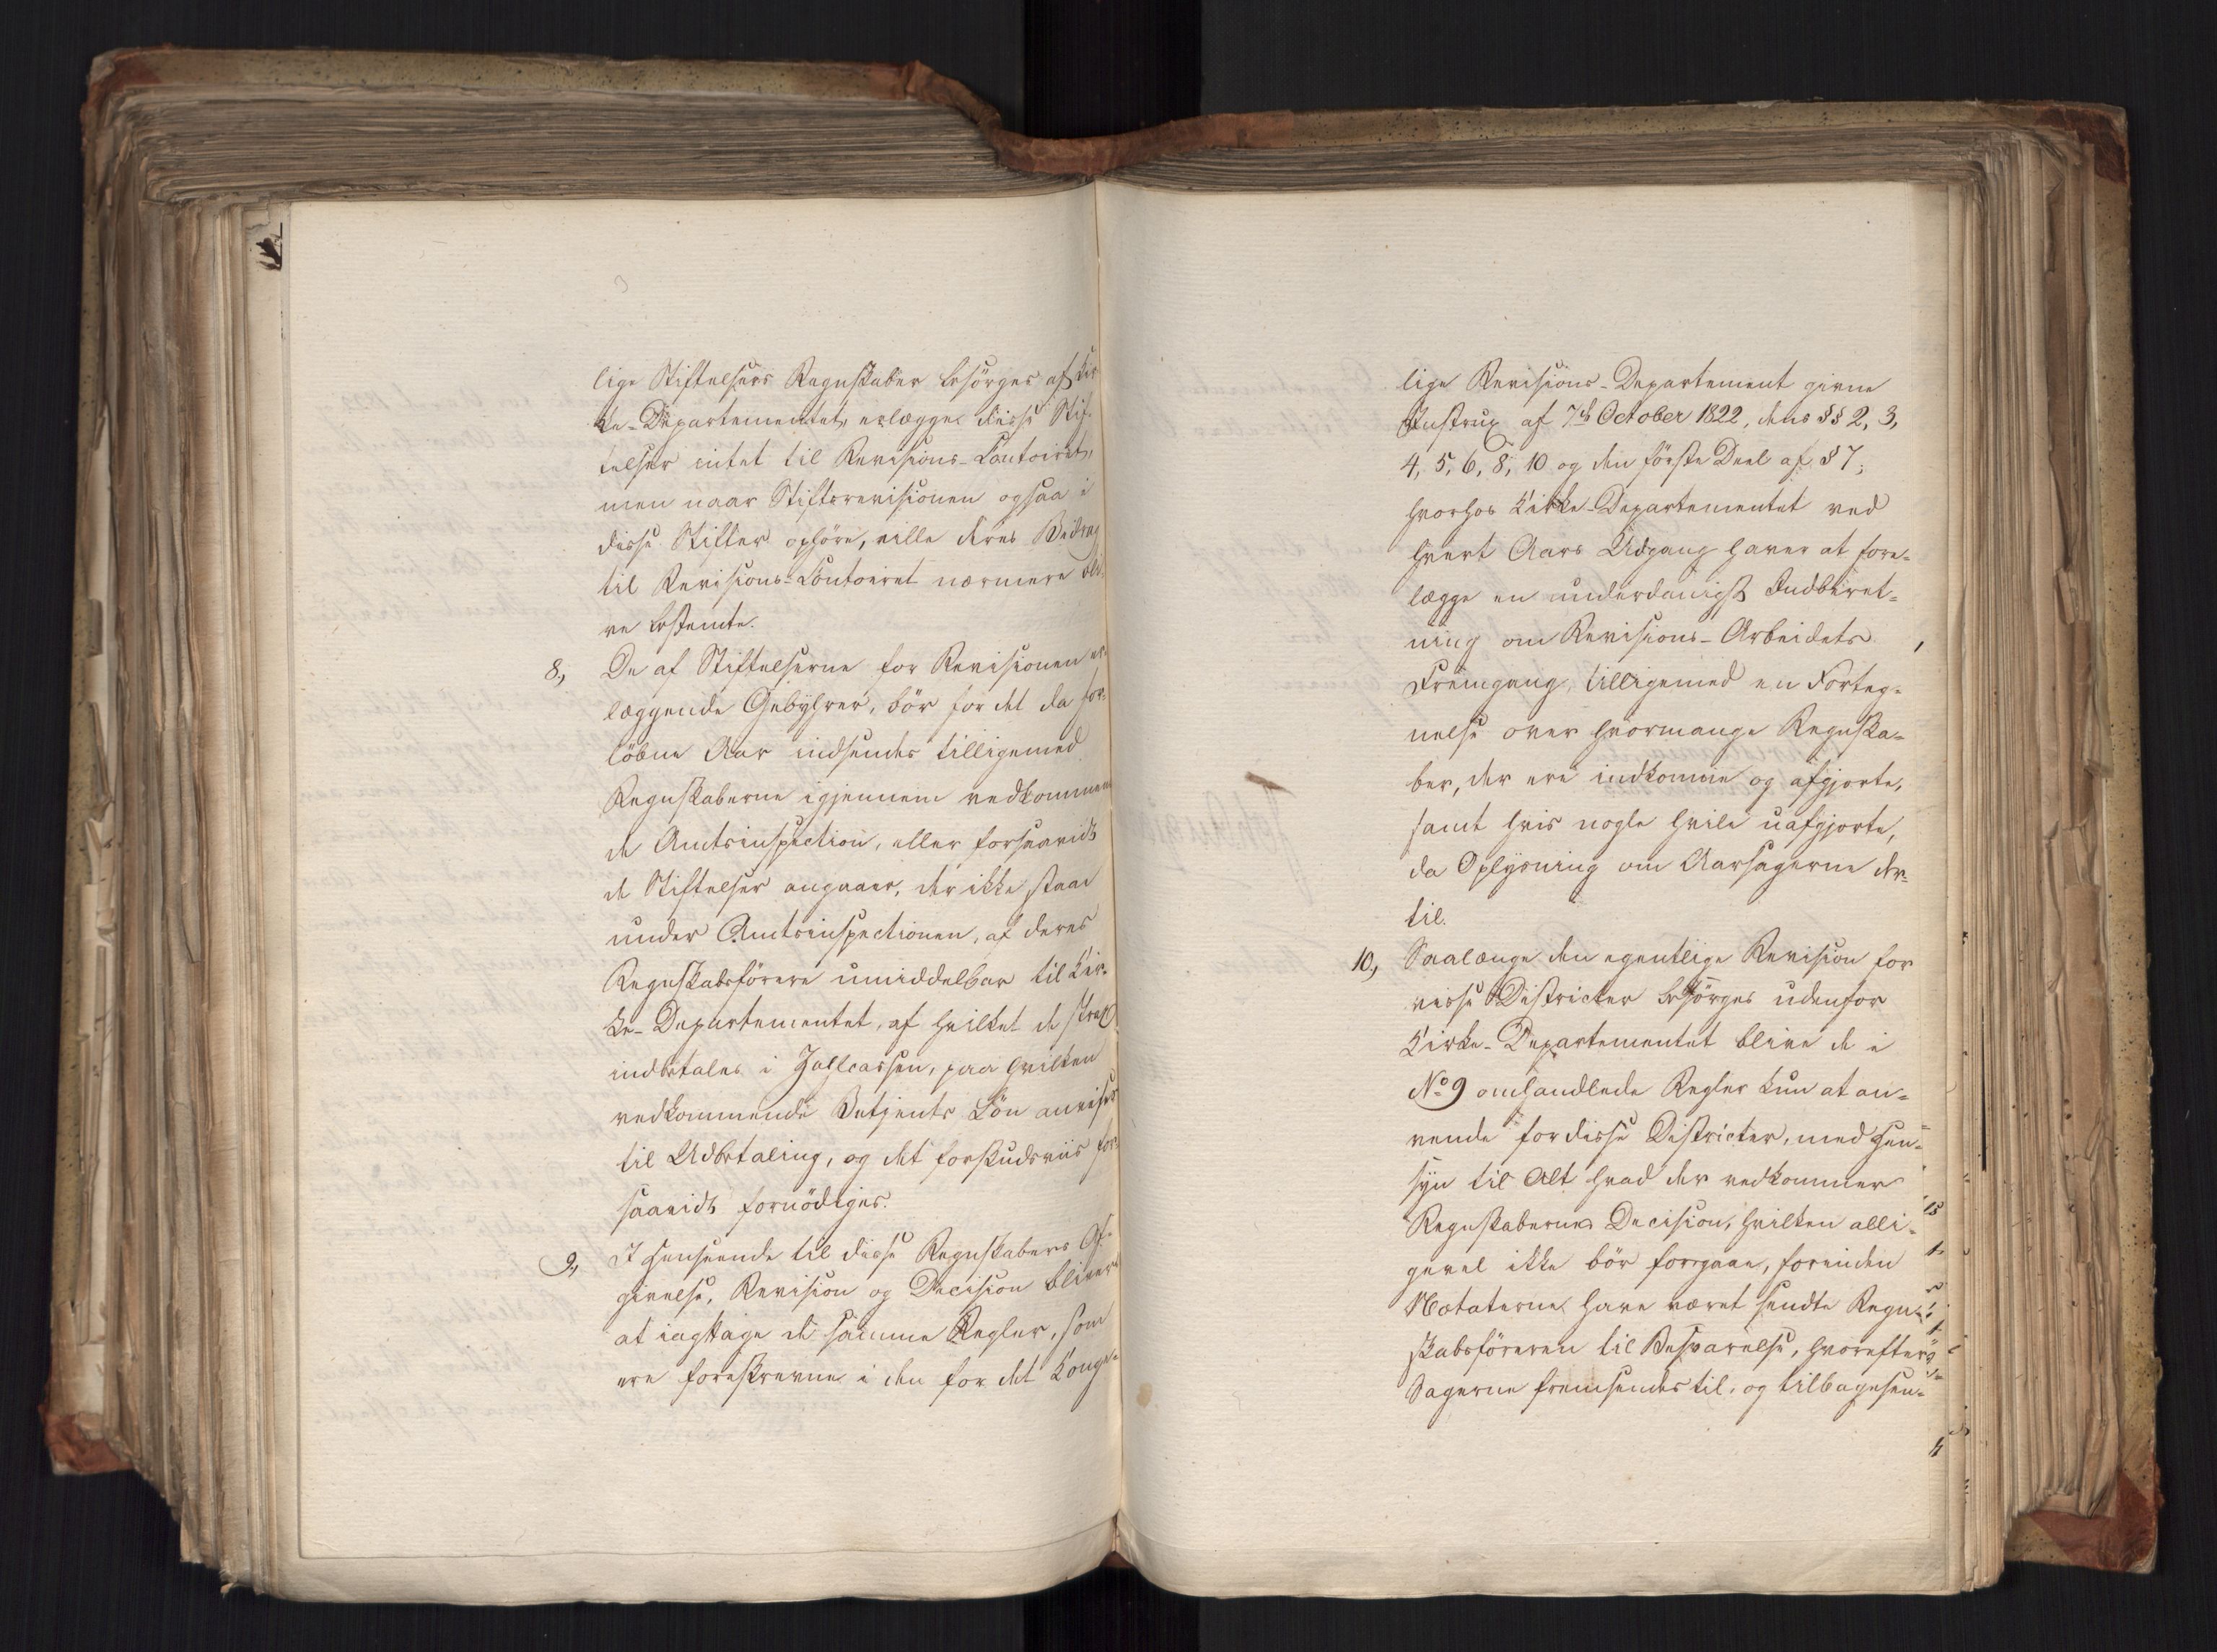 lige Stiftelsers Regnskaber besörges af Kir
ke-Departementet, erlægge disse Stif-
telser intet til Revisions-Contoiret,
men naar Stiftsrevisionen ogsaa i
disse Stifter ophöre, ville deres Bidrag
til Revisions-Contoiret nærmere bli
ve bestemte.
8, De af Stiftelserne for Revisionen er-
læggende Gebyhrer, bör for det da for-
löbne Aar indsendes tilligemed
Regnskaberne igjennem vedkommen
de Amtsinspection, eller forsaavidt
de Stiftelser angaaer, der ikke staae
under Amtsinspectionen, af deres
Regnskabsförere umiddelbar til Kir-
ke-Departementet, af hvilket de strax
indbetales i Zahlcassen, paa hvilken
vedkommende Betjents Lön anvises
til Udbetaling, og det forskudsviis for
saavidt fornödiges.
9, I Henseende til disse Regnskabers Af-
givelse, Revision og Decision bliver
at iagttage de samme Regler, som
ere foreskrevne i den for det Konge-
lige Revisions-Departement givne
Instrux af 7de October 1822, dens §§ 2, 3,
4, 5, 6, 8, 10 og den förste Deel af § 7;
hvorhos Kirke-Departementet ved
hvert Aars Udgang haver at fore-
lægge en underdanigst Indberet-
ning om Revisions-Arbeidets
Fremgang, tilligemed en Forteg-
nelse over hvormange Regnska-
ber, der ere indkomne og afgjorte,
samt hvis nogle hvile uafgjorte,
da Oplysning om Aarsagerne der-
til.
10, Saalænge den egentlige Revision for
visse Districter besörges udenfor
Kirke-Departementet blive de i
No 9 omhandlede Regler kun at an-
vende for disse Districter, med Hen-
syn til Alt hvad der vedkommer
Regnskabernes Decision, hvilken alli-
gevel ikke bör forgaae, forinden
Notaterne have været sendte Regn-
skabsföreren til Besvarelse, hvorefter
Sagerne fremsendes til, og tilbagesen-